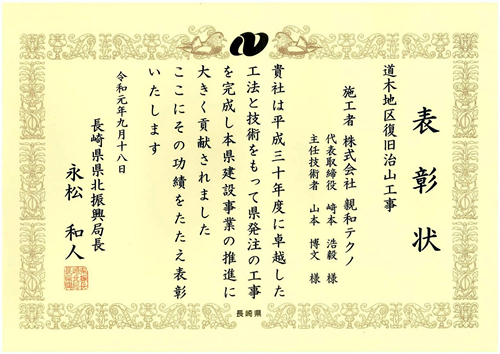 表彰状
道木地区復旧治山工事
施工者 株式会社 親和テクノ
代表取締役 﨑本 浩毅 様
主任技術者 山本 博文 様
貴社は平成三十年度に卓越した
工法と技術をもって県発注の工事
を完成し本県建設事業の推進に
大きく貢献されました
ここにその功績をたたえ表彰
いたします
令和元年九月十八日
長崎県県北振興局長
永松 和人
長崎県